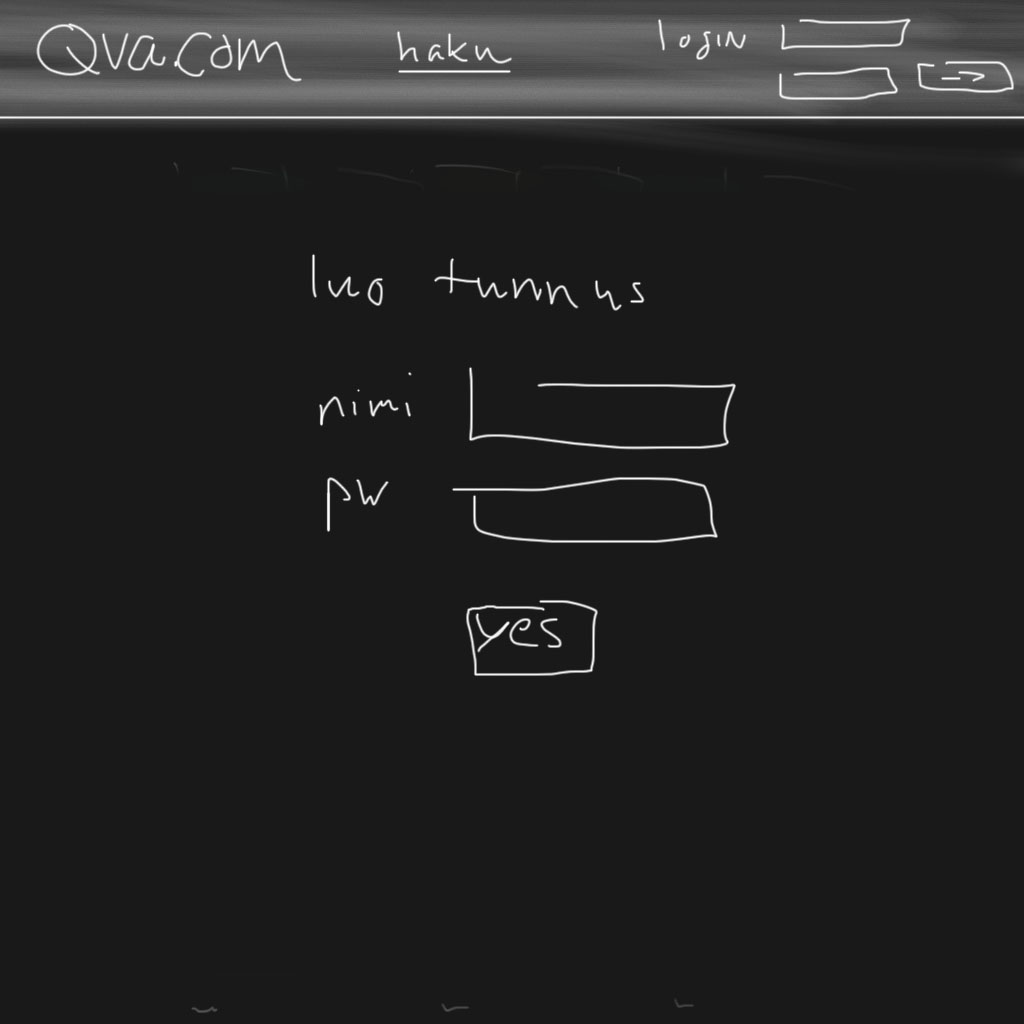 Qva.com haku login
->
luo tunnus
nimi
pw
yes